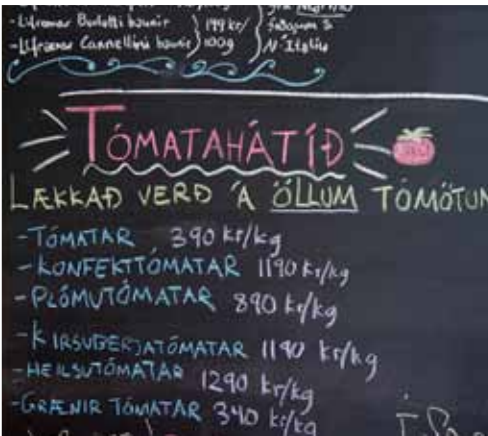 -Lífrænar Borlotti baunir
-Lífrænar Cannellini baunir
199 kr/
100g
N-Ítalíu
TÓMATAHÁTÍÐ
LÆKKAÐ VERÐ Á ÖLLUM TÓMÖTUM
-TÓMATAR 390 kr/kg
-KONFEKTTÓMATAR 1190 kr/kg
-PLÓMUTÓMATAR 890 kr/kg
-KIRSUBERJATÓMATAR 1190 kr/kg
-HEILSUTÓMATAR 1290 kr/kg
-GRÆNIR TÓMATAR 340 kr/kg